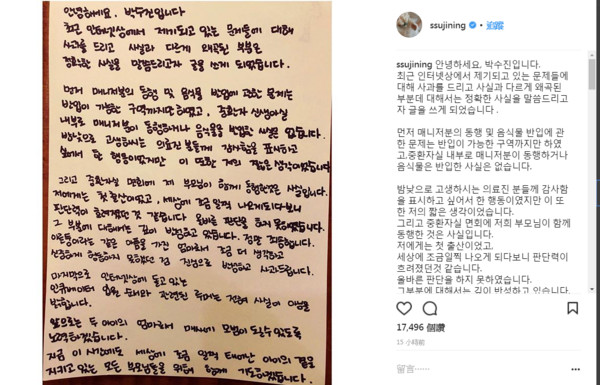 안녕하세요, 박수진입니다
최근 인터넷상에서 제기되고 있는 문제들에 대해
사과를 드리고 사실과 다르게 왜곡된 부분은
정확한 사실을 말씀드리고자 글을 쓰게 되었습니다.
먼저 매니저분의 동행 및 음식물 반입에 관한 문제는
반입이 가능한 구역까지만 하였고, 중환자실
내부로 매니저분이 동행하거나 음식물을 반입한 사실은 없습니다.
밤낮으로 고생하시는 의료진 분들께 감사함을 표시하고
싶어서 한 행동이었지만 이 또한 저의 짧은 생각이었습니다
그리고 중환자실 면회에 제 부모님이 함께 동행한것은 사실입니다.
저에게는 첫 출산이었고, 세상에 조금 일찍 나오게되다보니
판단력이 흐려졌던 것 같습니다. 올바른 판단을 하지 못하였습니다.
그 부분에 대해서는 깊이 반성하고 있습니다. 정말 죄송합니다.
같은 마음을 가진 엄마로서 조금 더 생각하고
신중하게 행동하지 못했던 점 진심으로 반성하고 사과드립니다.
마지막으로 인터넷상에 돌고 있는
인큐베이터 입원 순서와 관련된 루머는 전혀 사실이 아님을
밝힙니다.
앞으로는 두 아이의 엄마로서 매사에 모범이 될수 있도록
노력하겠습니다.
지금 이 시간에도 세상에 조금 일찍 태어난 아이의 곁을
지키고 있는 모든 부모님들을 위해 함께 기도하겠습니다.
ssujining • 追蹤
ssujining 안녕하세요. 박수진입니다.
최근 인터넷상에서 제기되고 있는 문제들에
대해 사과를 드리고 사실과 다르게 왜곡된
부분에 대해서는 정확한 사실을 말씀드리고
자 글을 쓰게 되었습니다 .
먼저 매니저분의 동행 및 음식물 반입에 관
한 문제는 반입이 가능한 구역까지만 하였
고,중환자실 내부로 매니저분이 동행하거나
음식물은 반입한 사실은 없습니다.
밤낮으로 고생하시는 의료진 분들께 감사함
을 표시하고 싶어서 한 행동이였지만 이 또
한 저의 짧은 생각이었습니다.
그리고 중환자실 면회에 저희 부모님이 함께
동행한 것은 사실입니다.
저에게는 첫 출산이였고
세상에 조금일찍 나오게 되다보니 판단력이
흐려졌던것 같습니다.
올바른 판단을 하지 못하였습니다.
그부분에 대해서는 깊이 반성하고 있습니다.
17,496 個讚
15 小時前
留言……